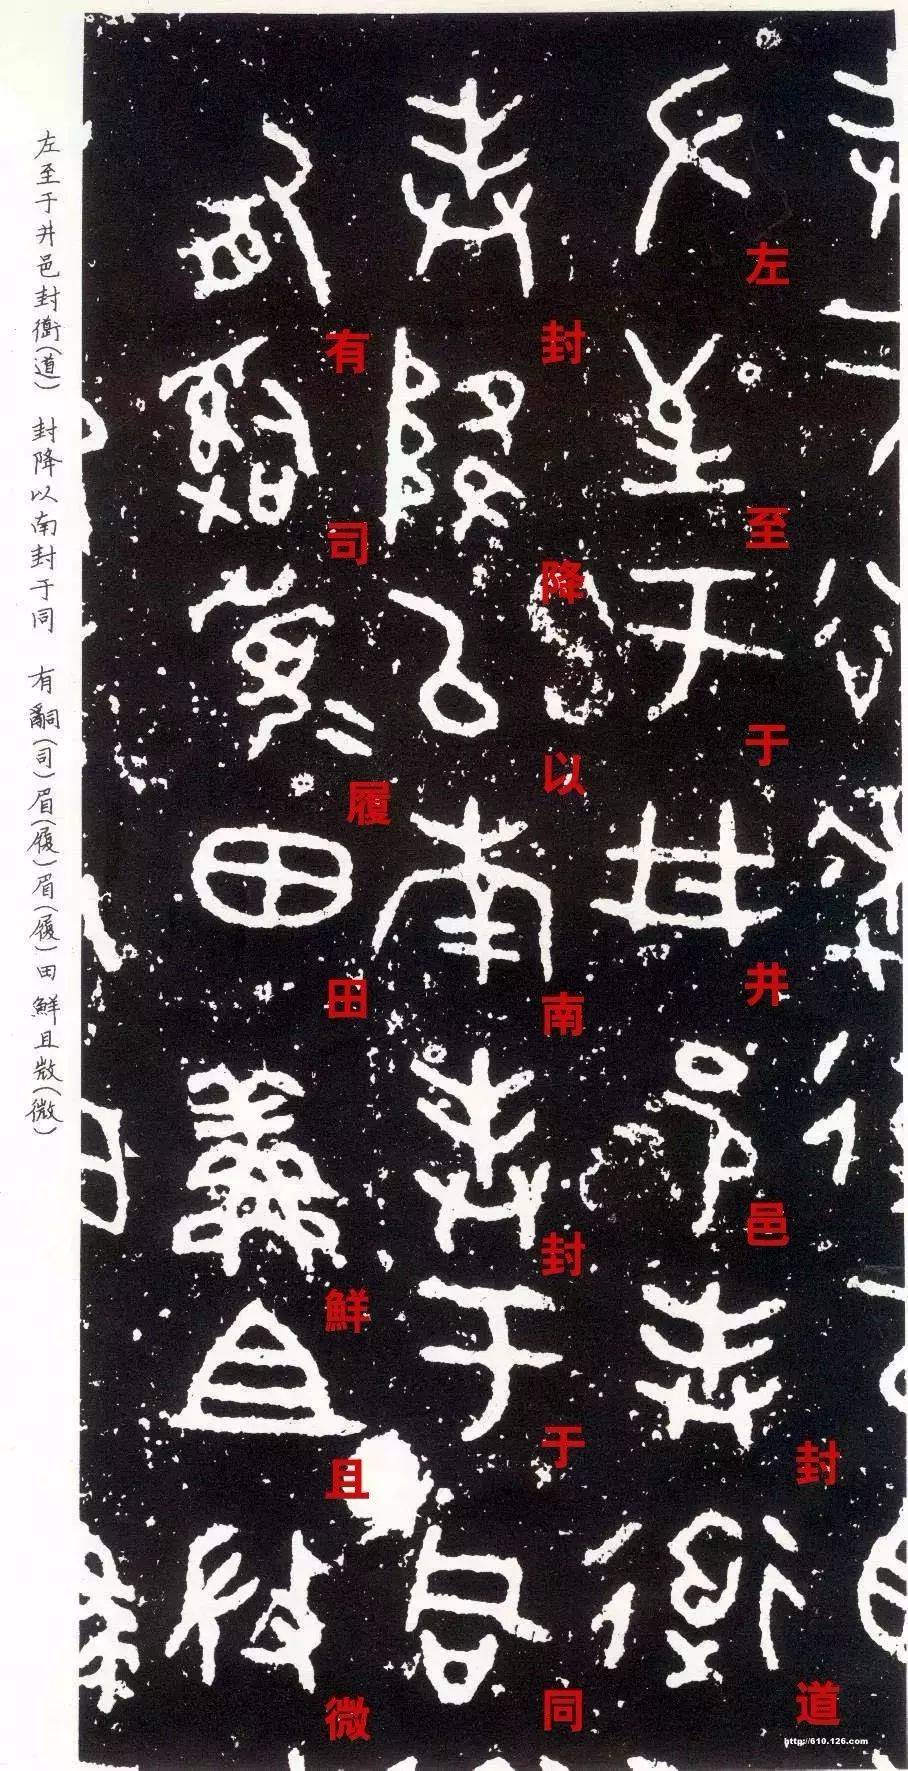 左至于井邑封道
封降以南封于同
有司履田鮮且微
左至于井邑封衜(道) 封降以南封于同 有𤔲(司)眉(履)眉(履)田鮮且𢼸(微)
http://610.126.com